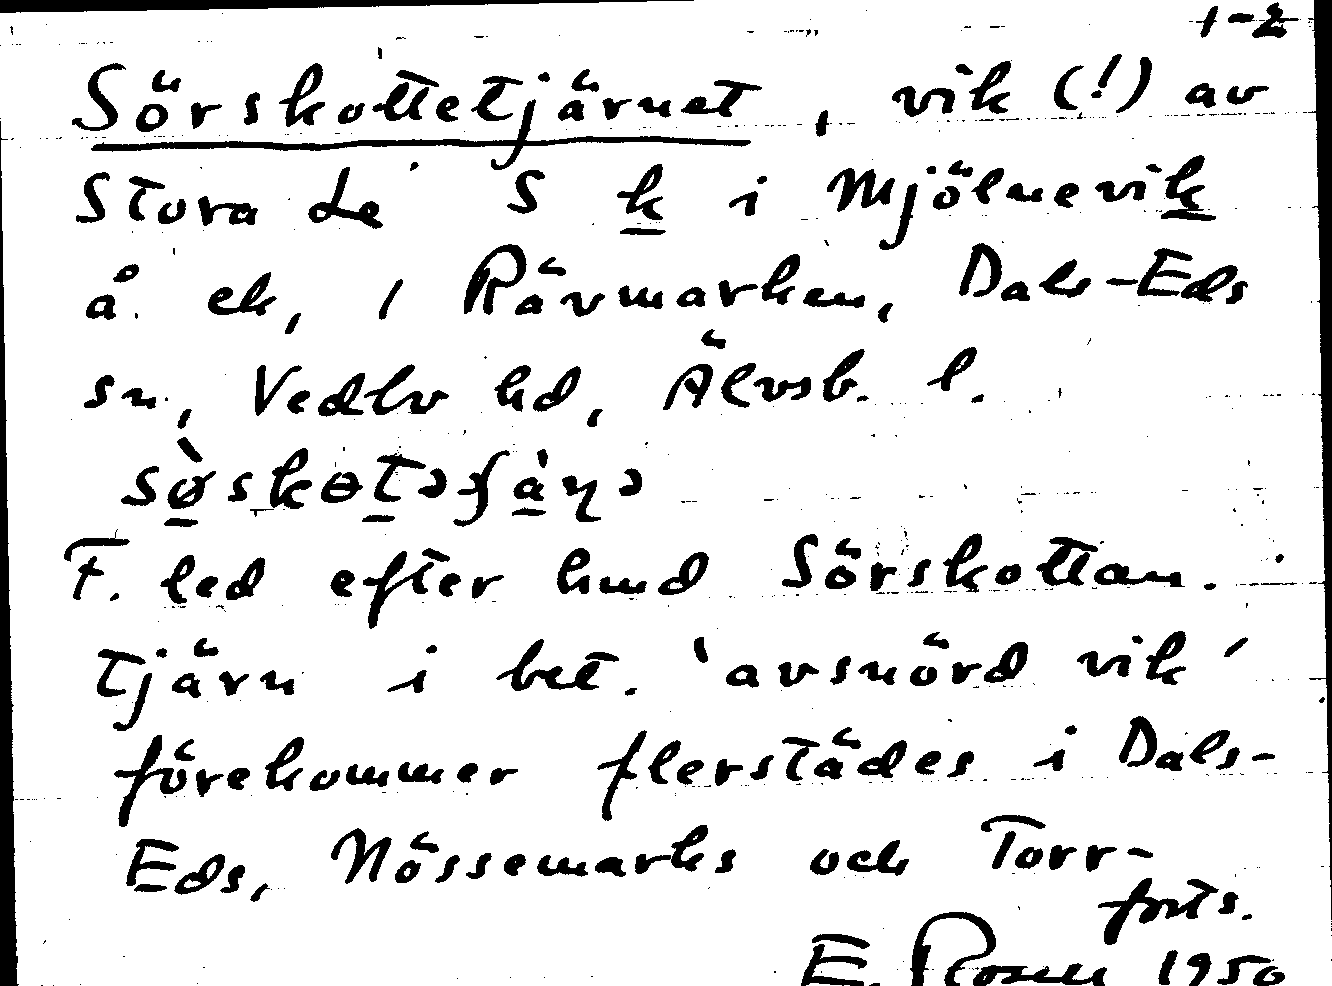 1-2
Sörskottetjärnet, vik (!) av
Stora Le S k i Mjölnevik
å ek, i Rävmarken, Dals-Eds
sn, Vedbo hd, Älvsb. l.
F. led efter hmd Sörskottan.
tjärn i bet. 'avsnörd vik'
förekommer flerstädes i Dals-
Eds, Nössemarks och Torr-
forts.
E. Rosell 1950